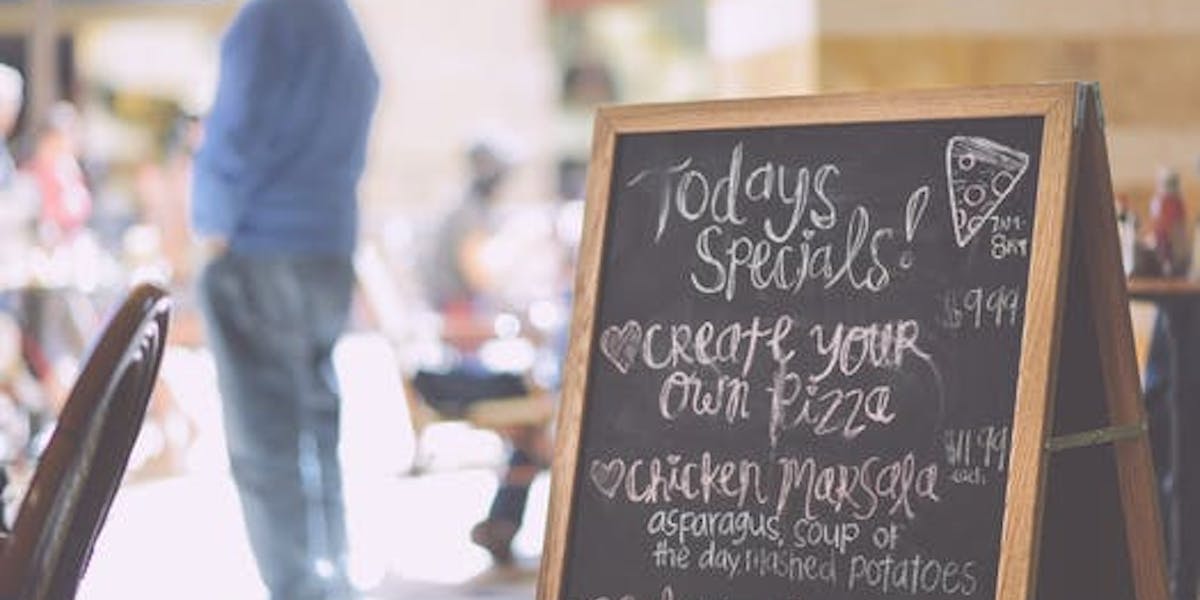 Todays
Specials!
$9.99
CREATE YOUR
OWN PIZZA
$11.99
each
Chicken MARSala
asparagus, soup of
the day, mashed potatoes